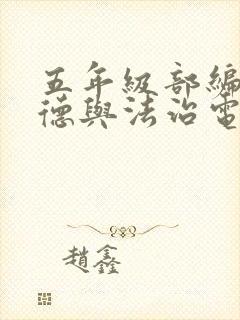 五年級部編
德與法治電
趙鑫